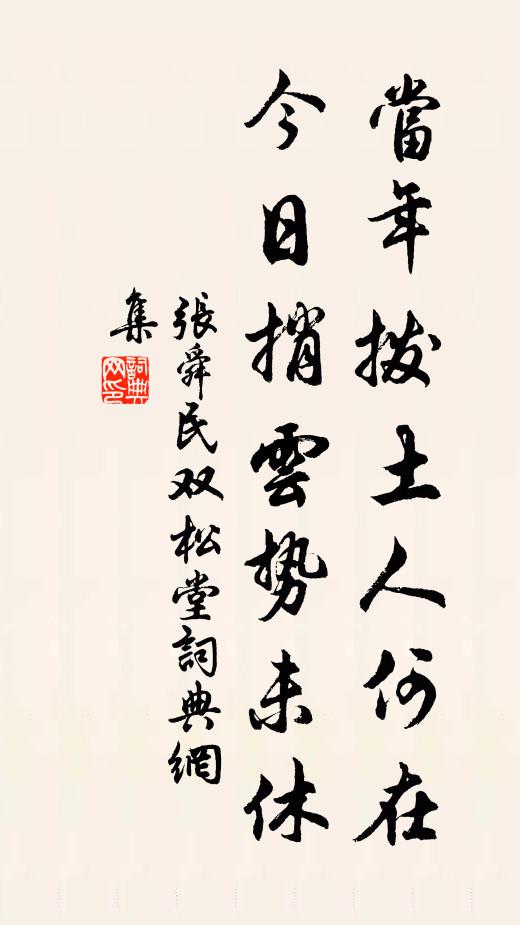 當年拨土人何在
今日捎雲势未休
張舜民双松堂詞典網
集
詞典
网印